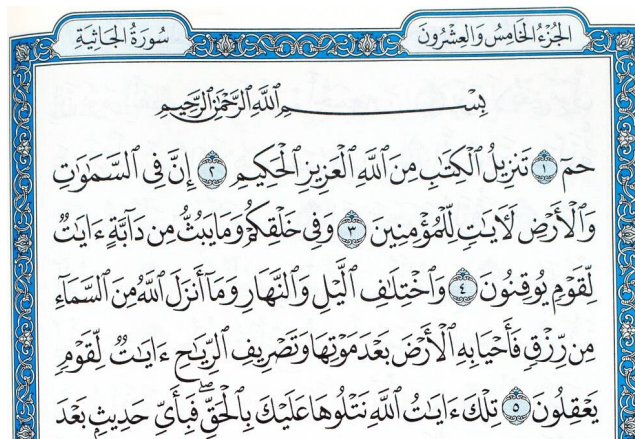 الجُزْءُ الخَامِسُ وَالعِشْرُونَ
سُورَةُ الجَاثِيَةِ
بِسْمِ اللَّهِ الرَّحْمَٰنِ الرَّحِيمِ
حمٓ ١ تَنزِيلُ الْكِتَٰبِ مِنَ اللَّهِ الْعَزِيزِ الْحَكِيمِ ٢ إِنَّ فِى السَّمَٰوَٰتِ
وَالْأَرْضِ لَأَيَٰتٍ لِّلْمُؤْمِنِينَ ٣ وَفِى خَلْقِكُمْ وَمَا يَبُثُّ مِن دَآبَّةٍ ءَايَٰتٌ
لِّقَوْمٍ يُوقِنُونَ ٤ وَاخْتِلَٰفِ الَّيْلِ وَالنَّهَارِ وَمَآ أَنزَلَ اللَّهُ مِنَ السَّمَآءِ
مِن رِّزْقٍ فَأَحْيَا بِهِ الْأَرْضَ بَعْدَ مَوْتِهَا وَتَصْرِيفِ الرِّيَٰحِ ءَايَٰتٌ لِّقَوْمٍ
يَعْقِلُونَ ٥ تِلْكَ ءَايَٰتُ اللَّهِ نَتْلُوهَا عَلَيْكَ بِالْحَقِّ ۖ فَبِأَىِّ حَدِيثٍۭ بَعْدَ